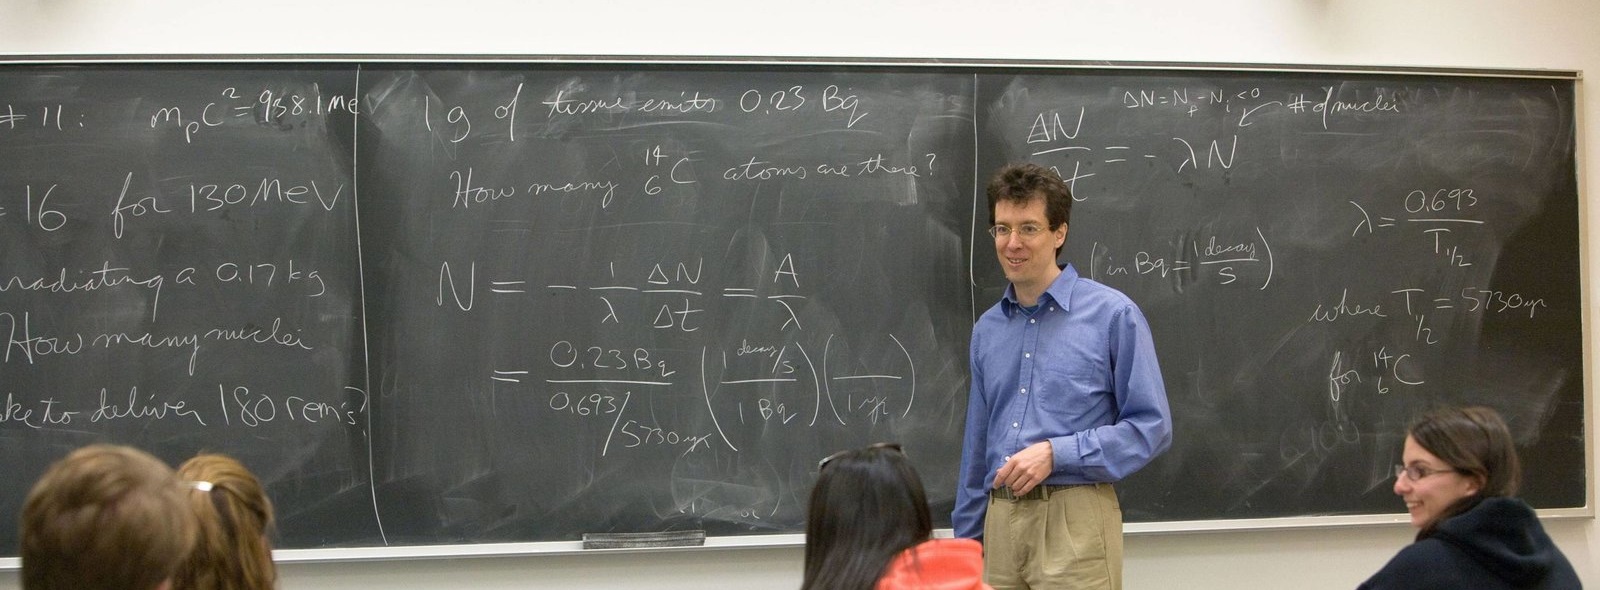 # 11: mpC²=938.1 Me
= 16 for 130 MeV
radiating a 0.17 kg
How many nuclei
ke to deliver 180 rem's?
1 g of tissue emits 0.23 Bq
How many ¹⁴₆C atoms are there?
N = - 1/λ ΔN/Δt = A/λ
= 0.23 Bq / (0.693/5730 yr) (1 decay/s / 1 Bq) ( / 1 yr)
ΔN = Nf - Ni < 0 # of nuclei
ΔN/Δt = - λN
(in Bq = 1 decay/s)
λ = 0.693/T1/2
where T1/2 = 5730 yr
for ¹⁴₆C